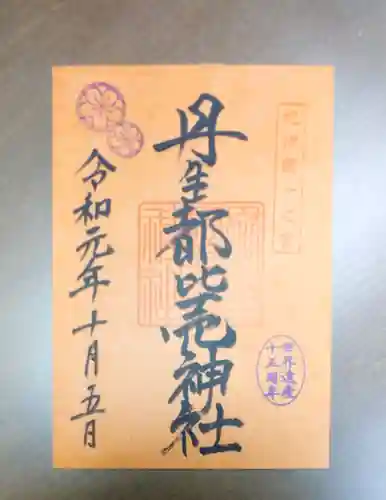 紀伊國一之宮
丹生都比売神社
世界遺産
十五周年
令和元年十月五日